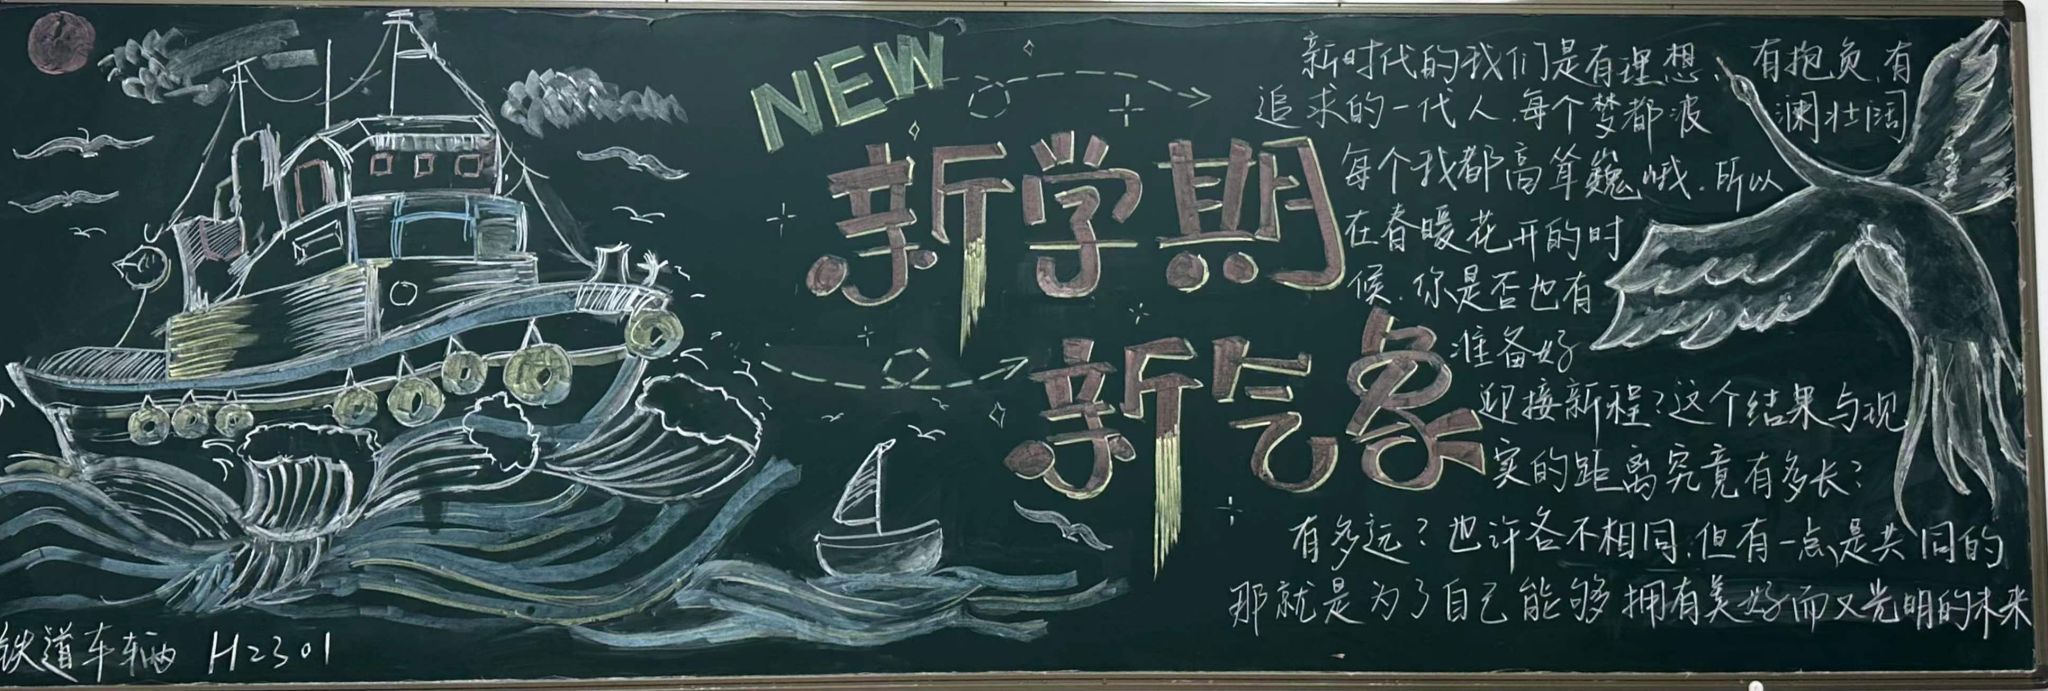 NEW
新学期
新气象
新时代的我们是有理想、有抱负,有
追求的一代人.每个梦都波澜壮阔
每个我都高耸巍峨.所以
在春暖花开的时
候.你是否也有
准备好
迎接新程?这个结果与现
实的距离究竟有多长?
有多远?也许各不相同.但有一点是共同的
那就是为了自己能够拥有美好而又光明的未来
铁道车辆 H2301